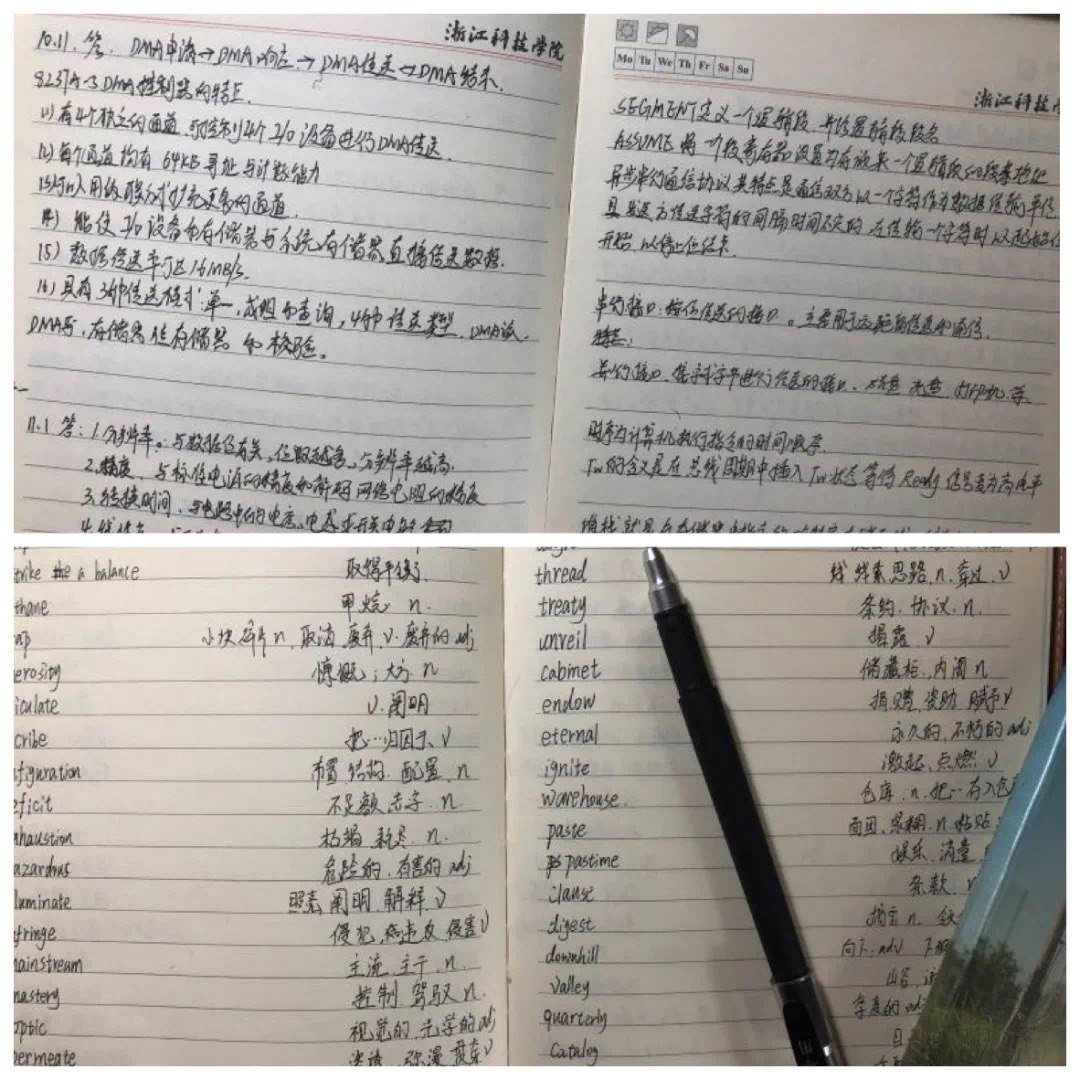 浙江科技学院
10.11. 答. DMA申请→DMA响应→DMA传送→DMA结束.
8237A-5 DMA控制器的特征.
(1)有4个独立的通道,可控制4个I/O设备进行DMA传送.
(2)每个通道均有64KB寻址与计数能力
(3)可以用级联方式扩充更多的通道.
(4)能使I/O设备和存储器与系统存储器直接传送数据.
(5)数据传送率可达1.6MB/s.
(6)具有3种传送模式:单一,成组和查询,4种传送类型.DMA读.
DMA写,存储器佳存储器和校验。
11.1 答:1.分辨率。:与数据位有关,位数越高,分辨率越高.
2.精度,与标准电源的精度和解码网络电阻的精度
3.转换时间,与电路中的电容、电感和开关电路
Mo Tu We Th Fr Sa Su
浙江科技
SEGMENT定义一个逻辑段,并设置逻辑段名
ASSUME将一个段寄存器设置为存放某一个逻辑段的段基地址
异步串行通信协议其特点是通信双方以一个字符作为数据传输单位
且发送方传送字符的间隔时间不定的,在传输一个字符时以起始位
开始,以停止位结束.
串行接口:按位传送的接口。主要用于远距离传送和通信.
特点:
并行接口.
打印机等.
时序为计算机执行指定的时间顺序
Tw的含义是在总线周期中插入Tw状态等待Ready信号变为高电平
trike the a balance 取得平衡
thane 甲烷 n.
小块碎片n,取消,废弃,v.废弃的adj
erosity 慷慨;大方 n
iculate v.阐明
cribe 把…归因于 v
figuration 布置 结构.配置.n
eficit 不足额 赤字.n
haustion 枯竭 耗尽 n.
azardrus 危险的.有害的 adj
luminate 照亮 阐明.解释.v
fringe 侵犯,违反,侵害v
ainstream 主流.主干.n.
nastery 控制 驾驭 n.
optic 视觉的.光学的adj
permeate 渗透,弥漫 贯穿v
thread 线 线索 思路.n.穿过.v
treaty 条约.协议.n.
unveil 揭露.v
cabinet 储藏柜.内阁 n
endow 捐赠,资助 赋予v
eternal 永久的,不朽的 adj
ignite 激起,点燃 v
warehouse. 仓库.n.把…存入仓
paste 面团、浆糊.n 粘贴
pastime 娱乐,消遣
clause 条款.
digest 摘要 n.
downhill 向下.adv 下
valley 山谷,
quarterly 季度的 adj
catalog 目